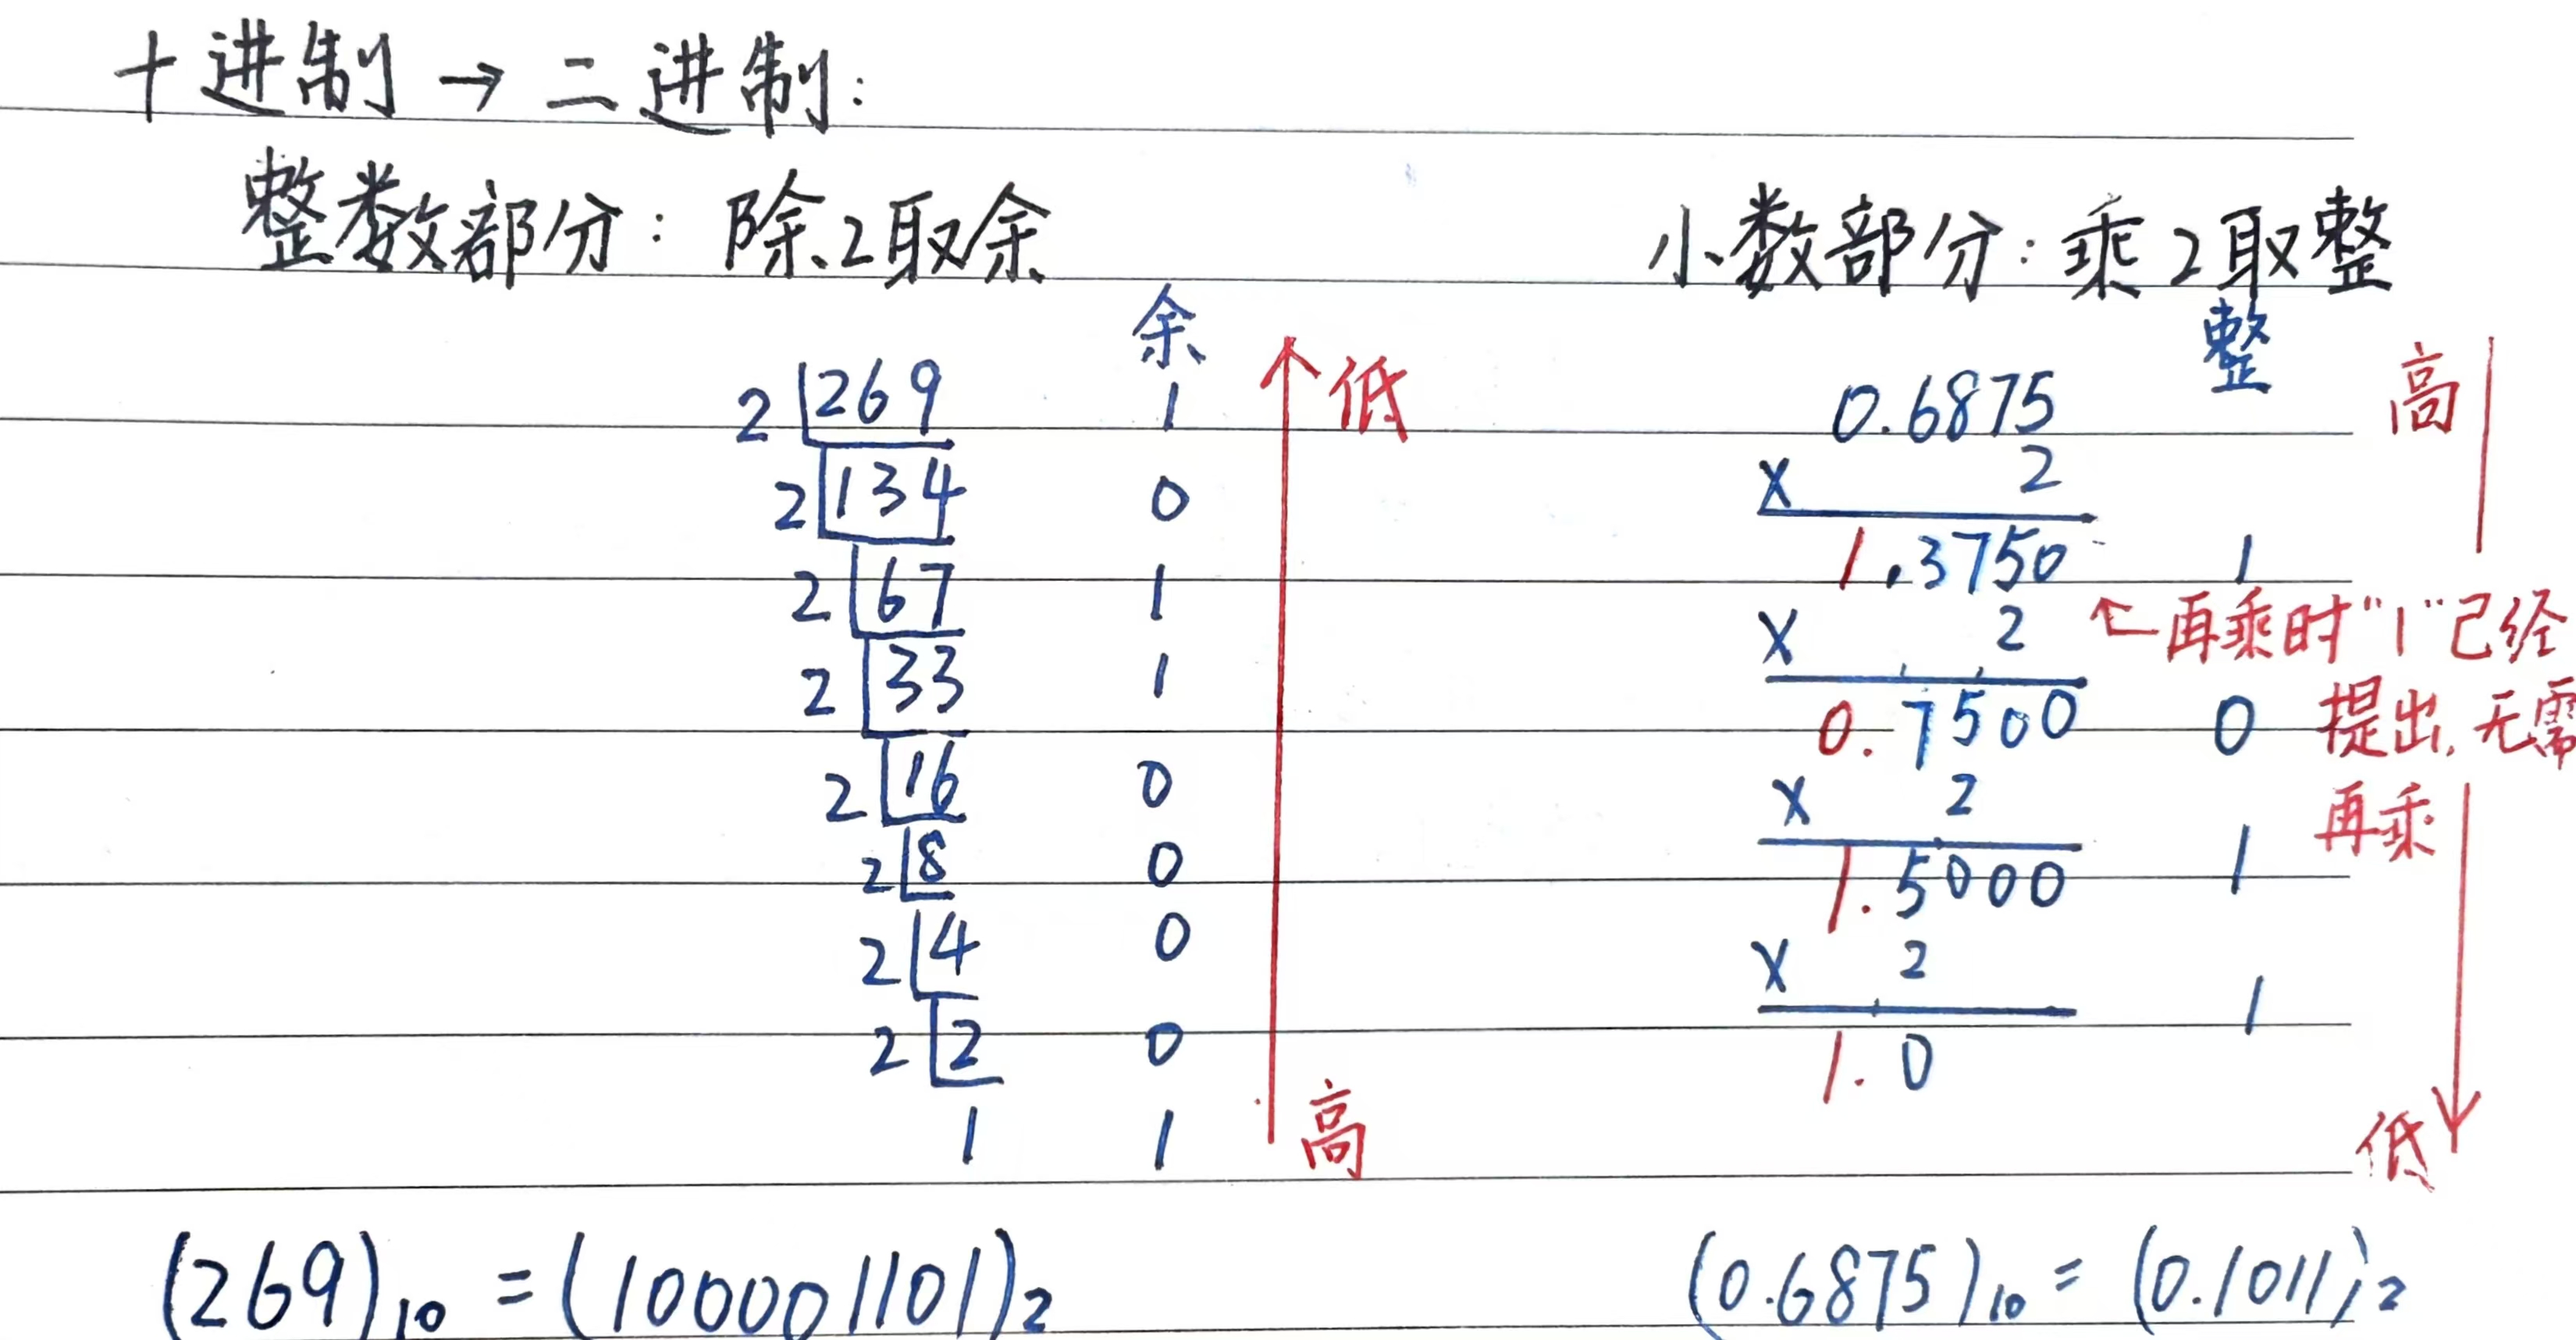 十进制 → 二进制:
整数部分: 除2取余
余
2 269 1 低
2 134 0
2 67 1
2 33 1
2 16 0
2 8 0
2 4 0
2 2 0
1 1 高
(269)₁₀ = (100001101)₂
小数部分: 乘2取整
整
0.6875 高
× 2
1.3750 1
× 2 ← 再乘时"1"已经
0.7500 0 提出, 无需
× 2 再乘
1.5000 1
× 2
1.0 1
低
(0.6875)₁₀ = (0.1011)₂